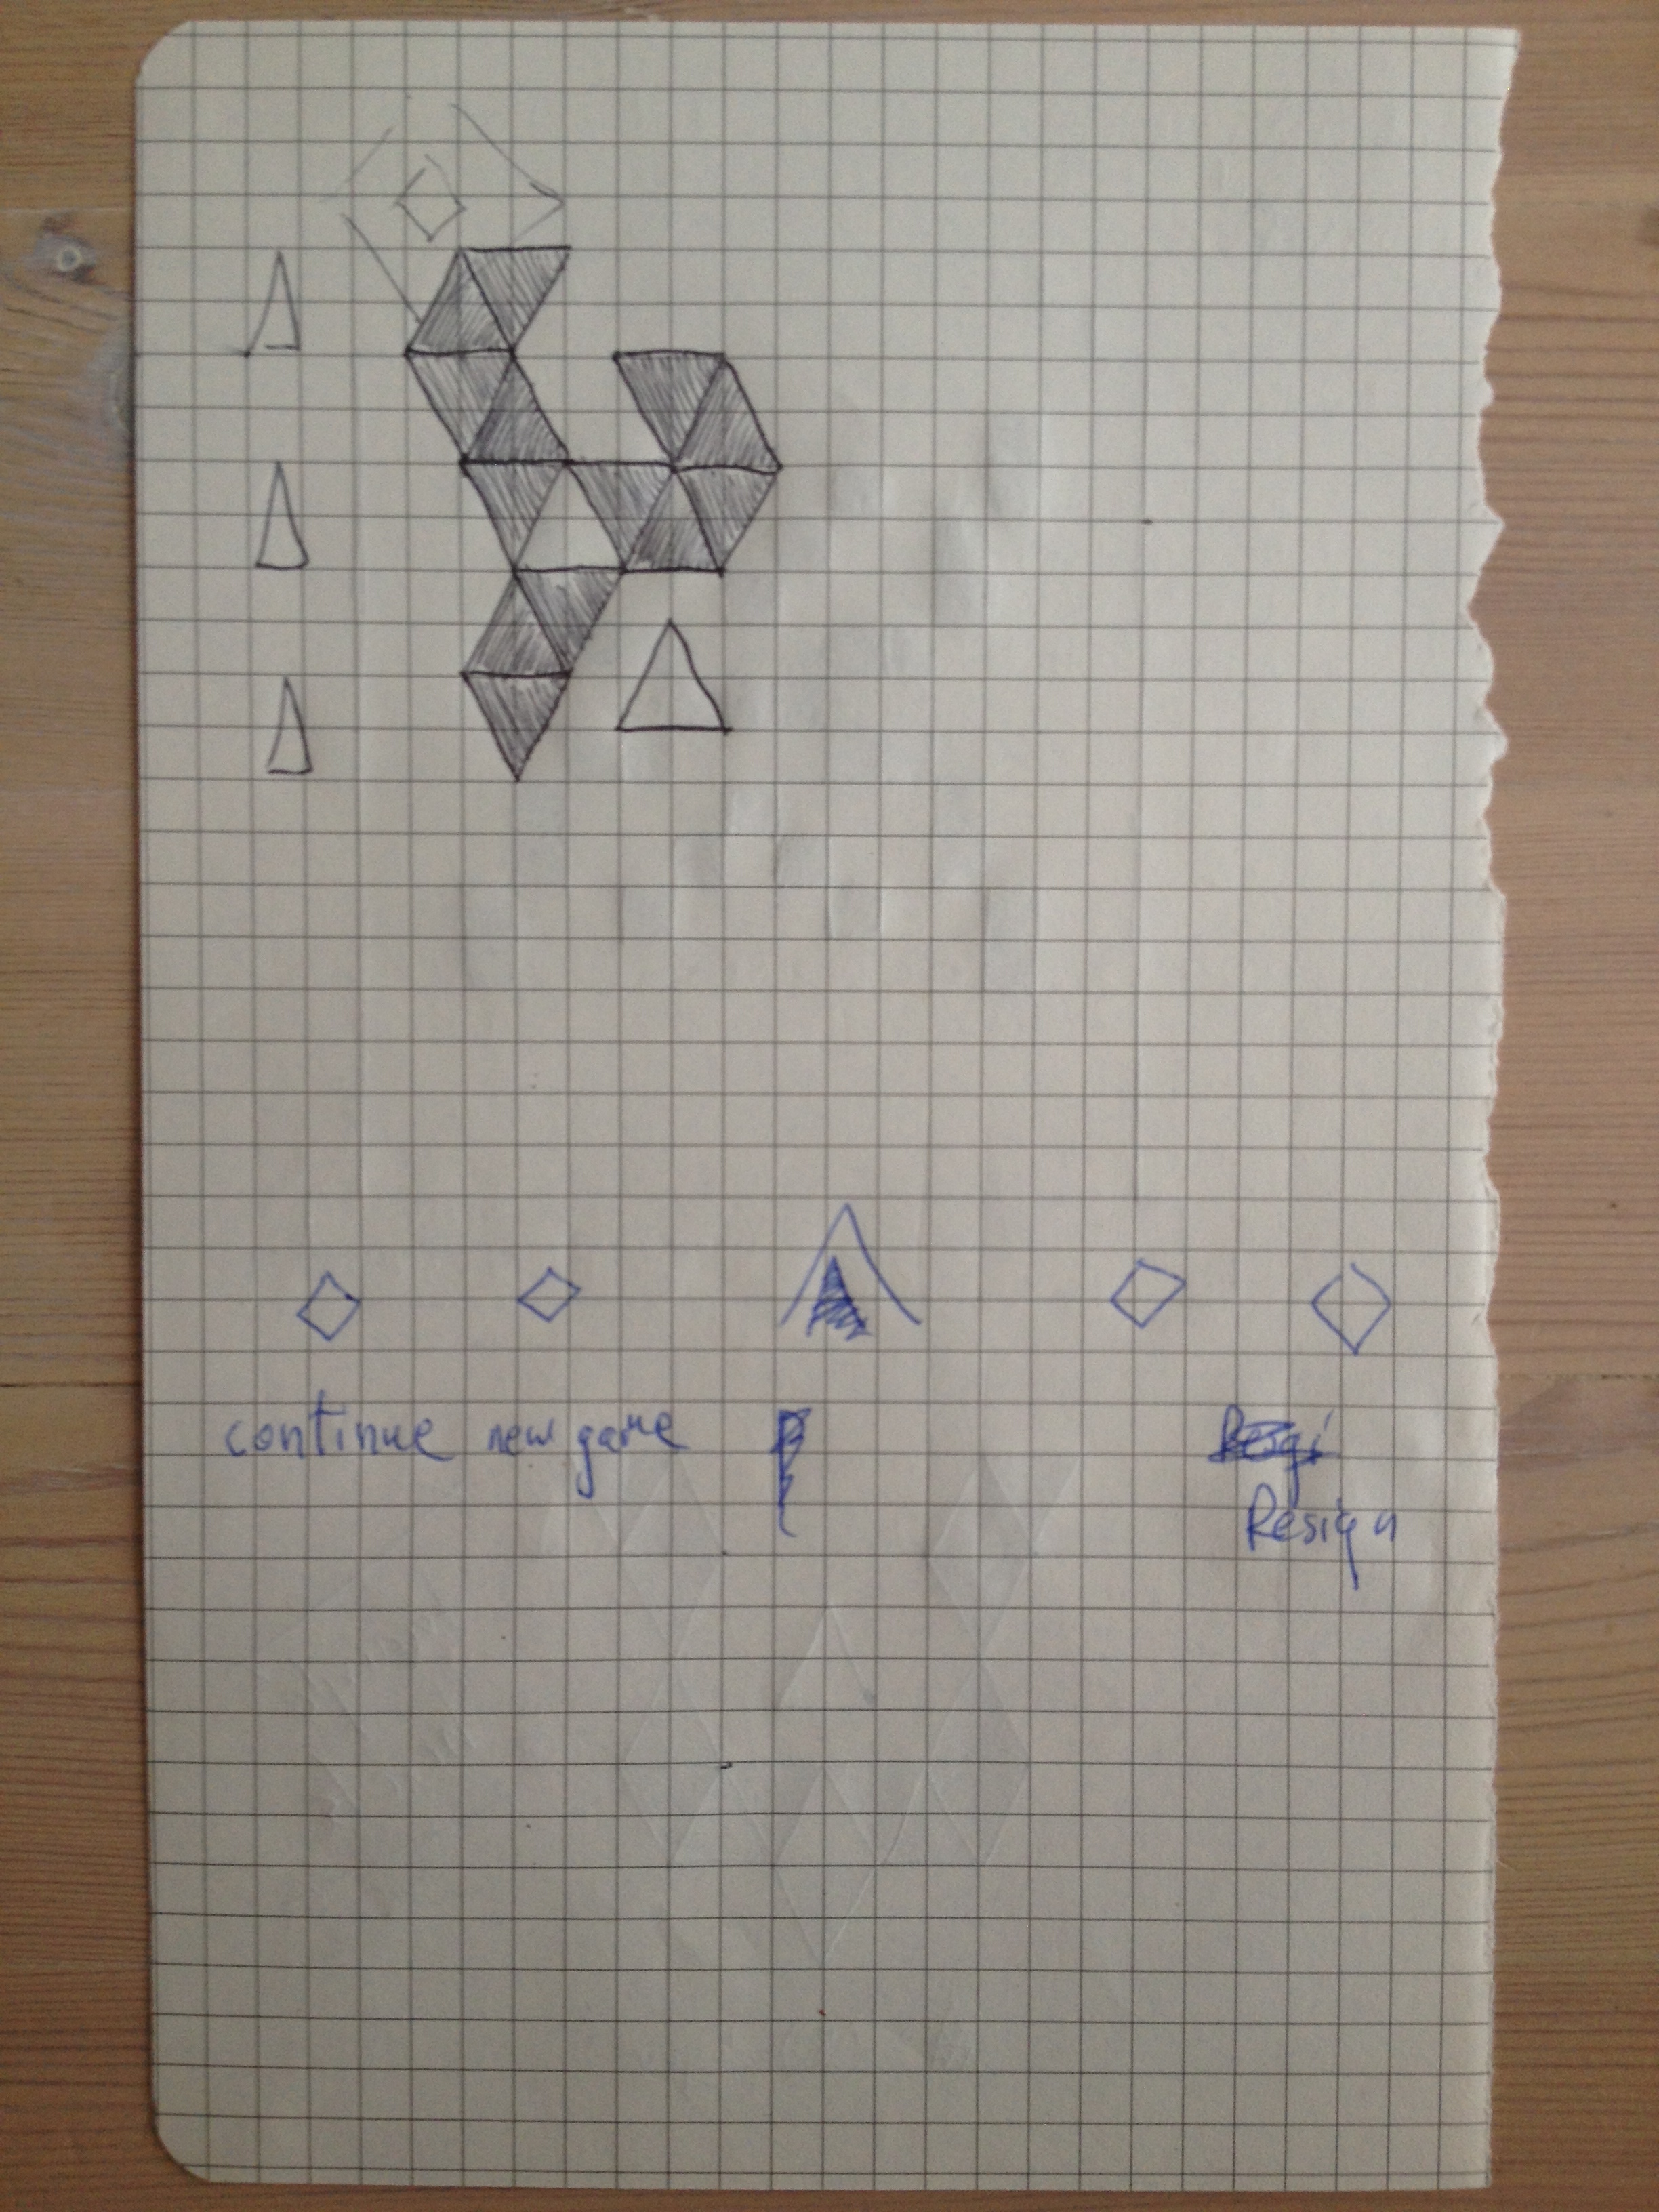 continue new game
Resign